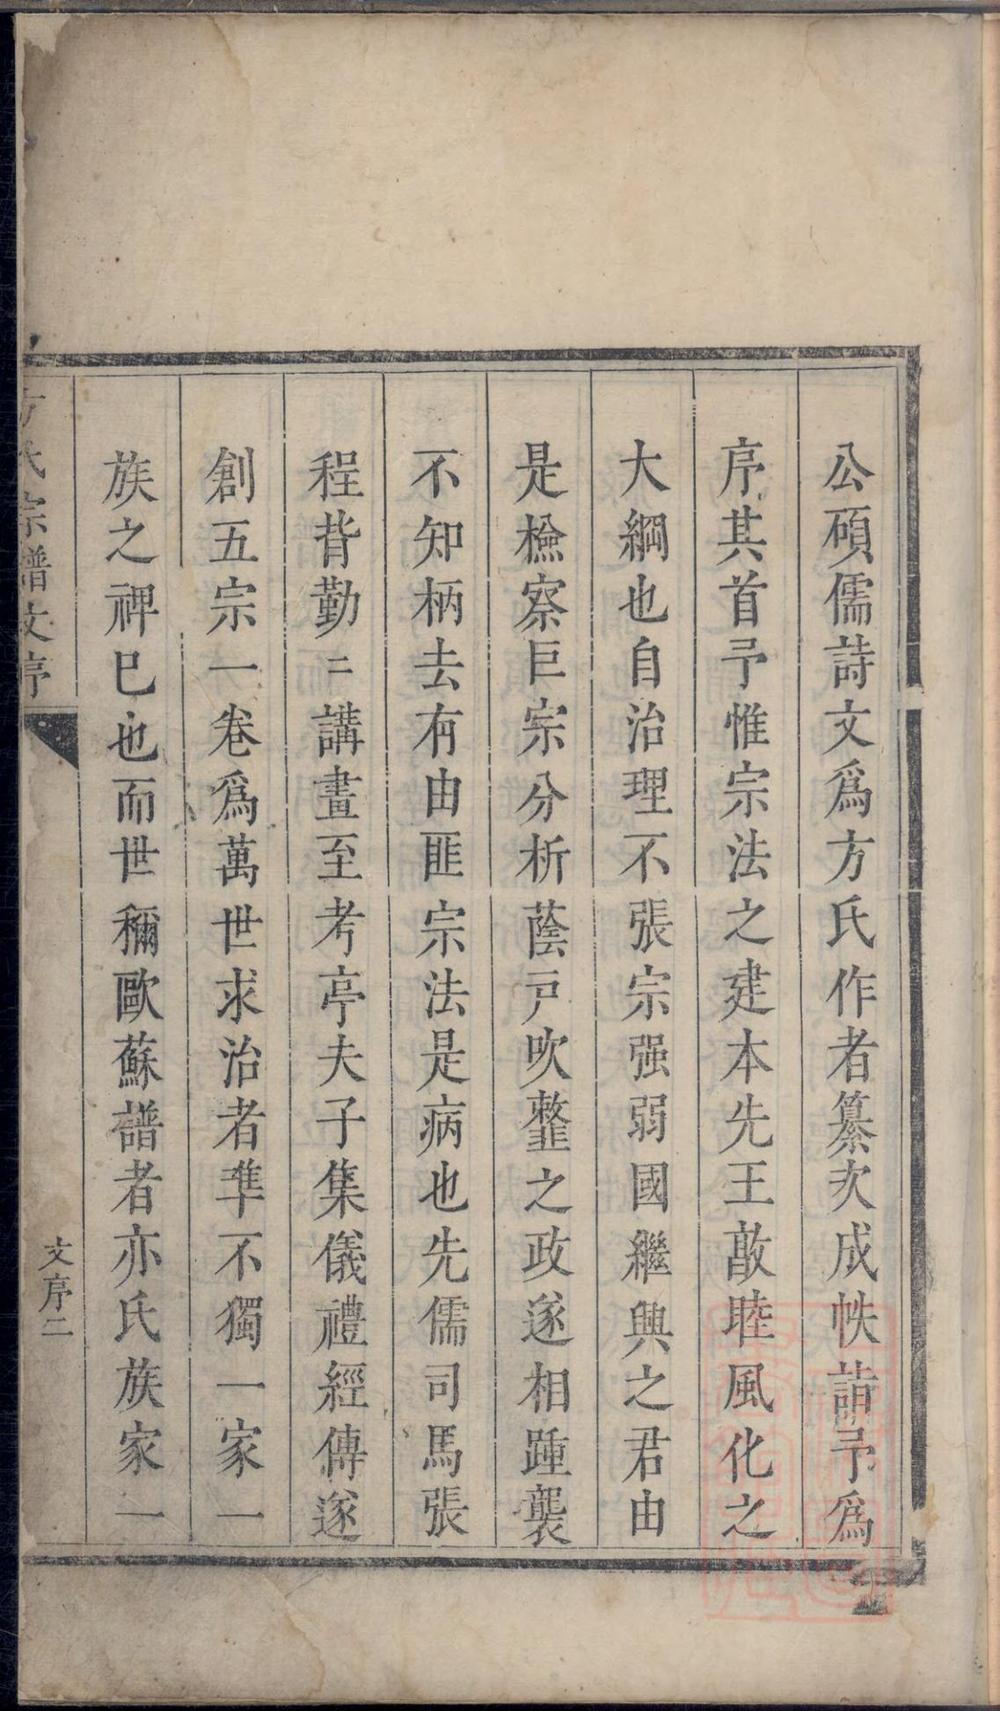 公碩儒詩文爲方氏作者纂次成帙請予爲
序其首予惟宗法之建本先王敢睦風化之
大綱也自治理不張宗强弱國繼興之君由
是檢察巨宗分析蔭戸吹虀之政遂相踵襲
不知柄去有由匪宗法是病也先儒司馬張
程背勤二講畫至考亭夫子集儀禮經傳遂
創五宗一卷爲萬世求治者凖不獨一家一
族之禆已也而世稱歐蘇譜者亦氏族家一
方氏宗譜文序
文序二